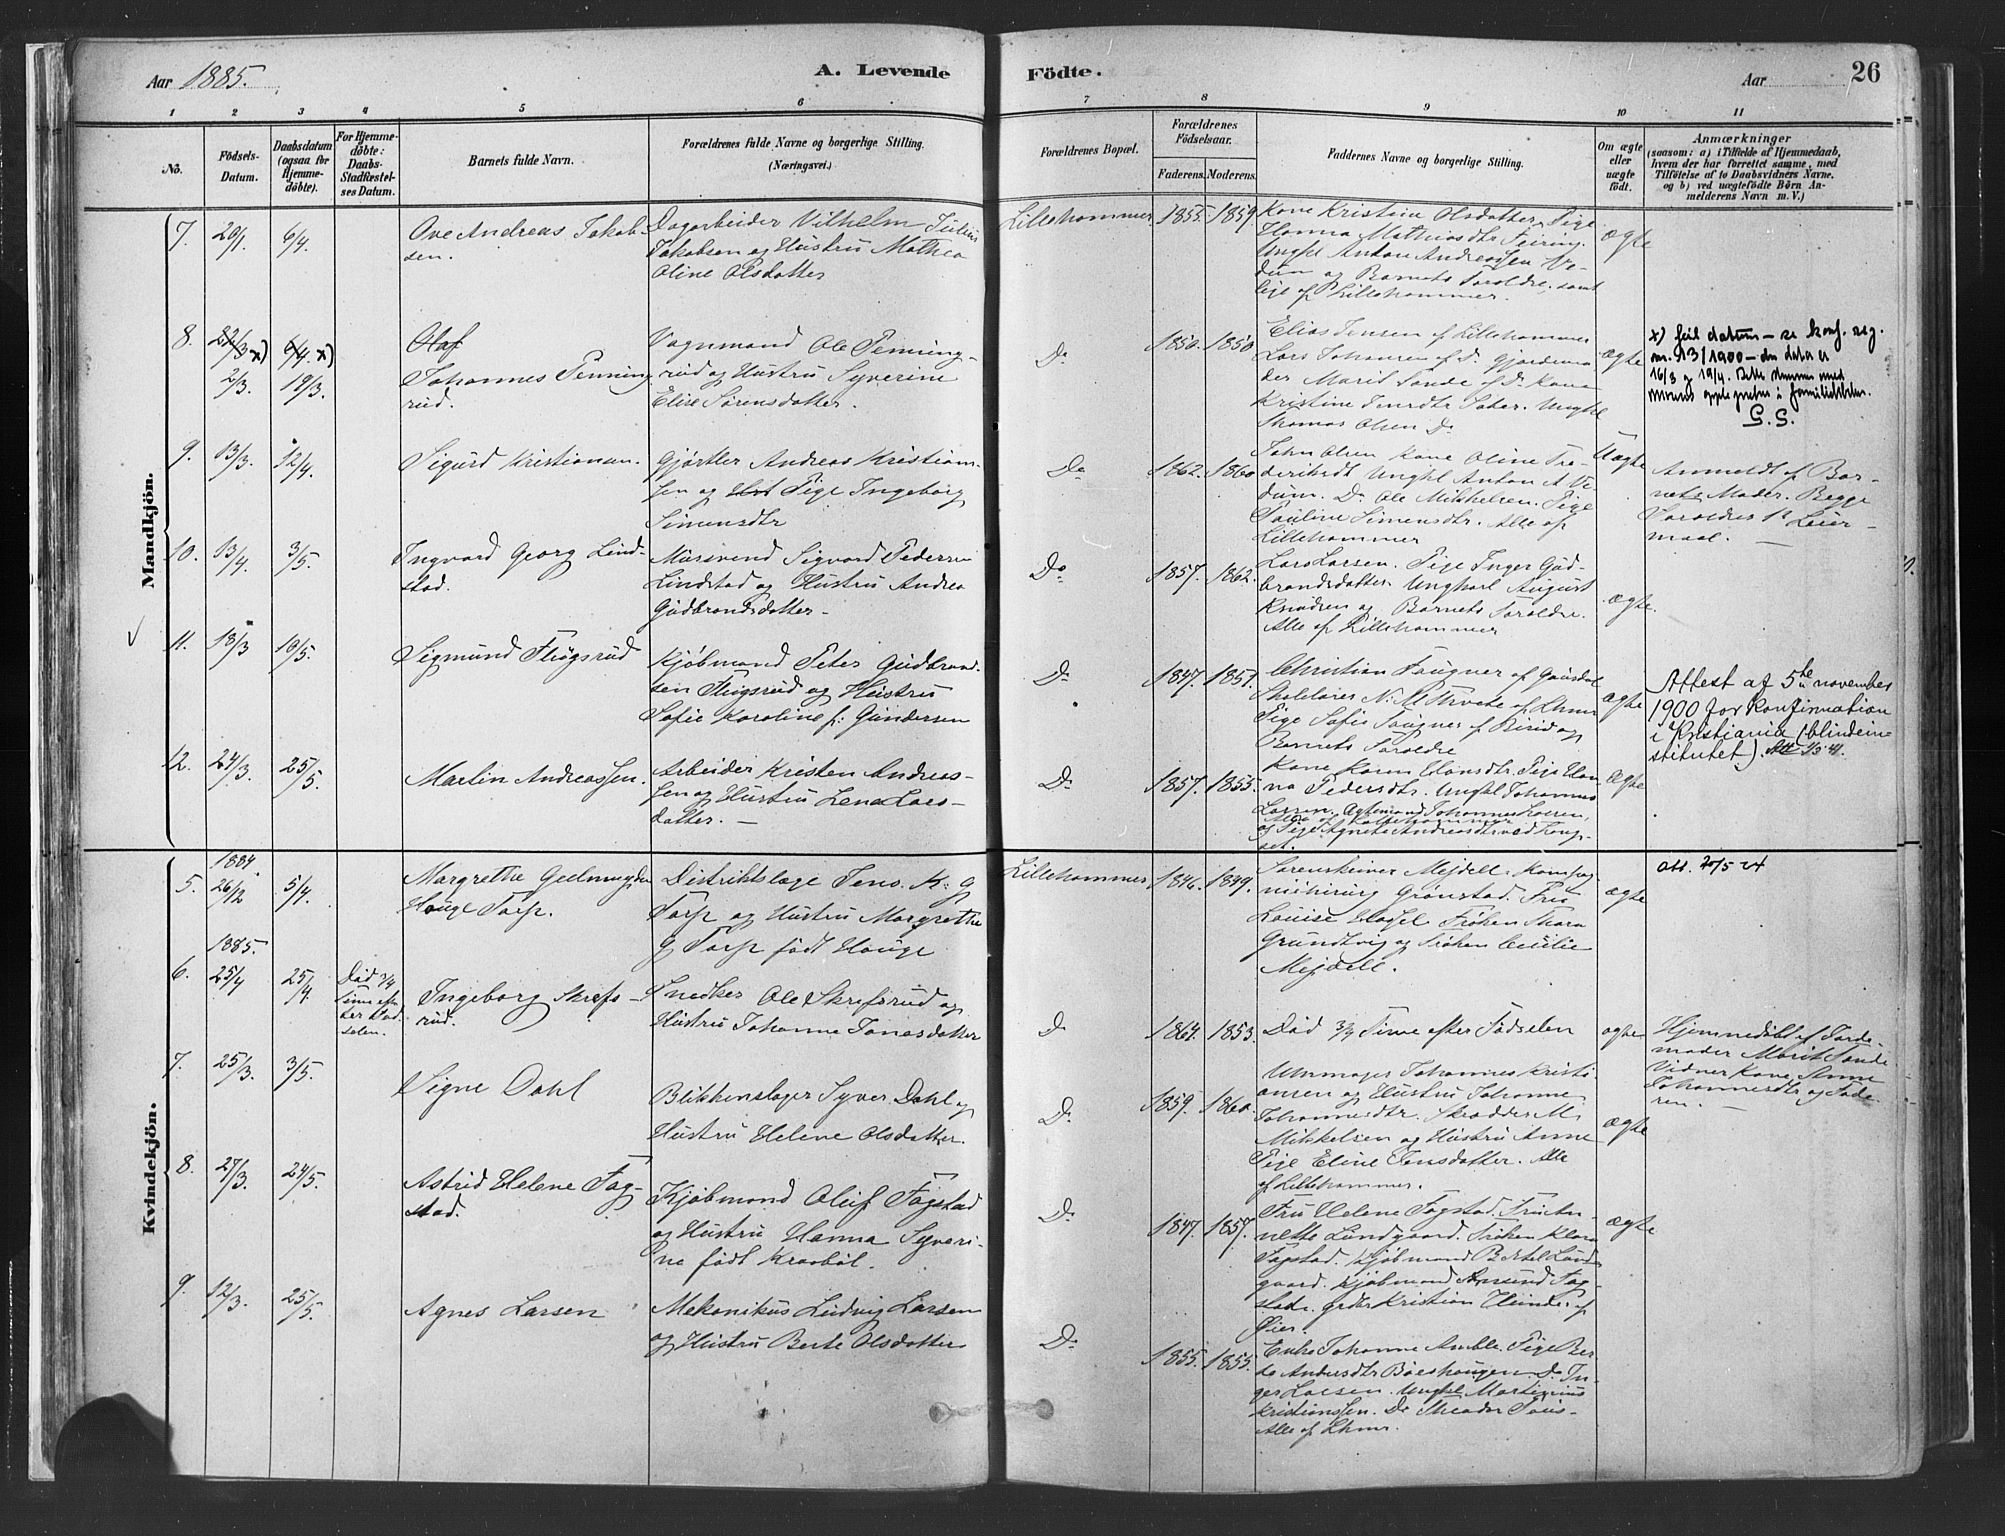 Aar 1885.
A. Levende
Födte.
Aar
26
1 2 3 4 5 6 7 8 9 10 11
No.
Födsels-
Datum.
Daabsdatum
(ogsaa for
Hjemme-
døbte).
For Hjemme-
döbte:
Daabs-
Stadfæstel-
ses Datum.
Barnets fulde Navn.
Forældrenes fulde Navne og borgerlige Stilling.
(Næringsvei.)
Forældrenes Bopæl.
Forældrenes
Födselsaar.
Faderens. Moderens.
Faddernes Navne og borgerlige Stilling.
Om ægte
eller
uægte
födt.
Anmærkninger
(saasom: a) i Tilfælde af Hjemmedaab,
hvem der har forrettet samme, med
Tilföielse af to Daabsvidners Navne.
og b) ved uægtefödte Börn An-
melderens Navn m. V.)
Mandkjön.
7. 20/1 6/4. Ove Andreas Jakob-
sen.
Dagarbeider Vilhelm Julius
Jakobsen og Hustru Mathea
Oline Olsdatter
Lillehammer 1855. 1859.
Kone Kristine Olsdatter, Pige
Hanna Mathiasdtr Feiring,
Ungkl Anton Andreassen Ve-
dum og Barnets Forældre, samt
lige af Lillehammer.
ægte
8. 22/3 x) 6/4. x)
2/3. 19/3.
Olaf
Johannes Penning
rud.
Vognmand Ole Penning-
rud og Hustru Syverine
Elise Sörensdatter.
Do 1850. 1850
Elias Jensen af Lillehammer
Lars Johansen af Do Gjordemo
der Marit Sande af Do Kone
Kristine Jensdtr Sater. Ungkl
Thomas Olsen Do
ægte
x) feil datum – se konf. reg.
nr. 13/1900 – der datoer
16/3 og 19/4. Dette stemmer med
morens opplysning i familieboken.
G.S.
9. 13/3. 12/4. Sigurd Kristiansen.
Gjörtler Andreas Kristian-
sen og Hst Pige Ingeborg
Simensdtr
Do 1862. 1860
John Olsen Kone Oline Fre-
deriksdt Ungkl Anton A Ve-
dum. Do Ole Mikkelsen. Pige
Pauline Simensdtr. Alle af
Lillehammer
Uægte
Anmeldt af Bar-
nets Moder. Begge
Forældres 1ste Leier-
maal. —
10. 13/4. 3/5. Ingvard Georg Lind-
stad.
Mürsvend Sigvard Pedersen
Lindstad og Hustru Andrea
Gudbrandsdatter –
Do 1857. 1862.
Lars Larsen. Pige Inger Gud-
brandsdatter. Ungkarl August
Knudsen og Barnets Forældre.
Alle af Lillehammer
ægte.
11. 18/3 10/5. Sigmund Flugsrud
Kjöbmand Peter Gudbrand-
sen Flugsrud og Hustru
Sofie Karoline f: Gundersen
Do 1847. 1851.
Christian Faugner af Gausdal
Skolelærer N. M. Tvete af Lhmr
Pige Sofie Faugner af Birid og
Barnets Forældre
ægte
Attest af 5te november
1900 for konfirmation
i Kristiania (blindein-
stitutet).
12. 24/3. 25/5. Martin Andreassen.
Arbeider Kristen Andreas-
sen og Hustru Lena Lars-
datter. —
Do 1857. 1855.
Kone Karen Hansdtr. Pige Han-
na Pedersdtr. Ungkl Johannes
Larsen.
og Pige Agnete Andreasdtr
ægte
Kvindekjön.
5. 1884.
26/12 5/4. Margrethe
Hauge Torp.
Distriktslæge Jens. K. G
Torp og Hustru Margrethe
G Torp født Hauge
Lillehammer 1846. 1849.
Sorenskriver Mejdell. Kom-
Grönstad. Fru
Louise Hassel Fröken Thora
Grundtvig og Fröken Cecilie
Mejdell.
ægte
att. 20/5 24
1885.
6. 25/4 25/4.
Död 3/4
Time ef-
ter Föd-
selen.
Ingeborg Skrefs-
rud.
Snedker Ole Skrefsrud og
Hustru Johanne Jonasdatter
Do 1864. 1853.
Död 3/4 Time efter Födselen
ægte
Hjemmedöbt af Jorde-
moder Marit Sande
Vidner Kone Anne
Johannesdtr og Fade-
ren. —
7. 25/3. 3/5. Signe Dahl
Blikkenslager Syver Dahl og
Hustru Helene Olsdatter.
Do 1859. 1860.
Uhrmager Johannes Kristi-
ansen og Hustru Johanne
Johannesdtr. Skrædder M.
Mikkelsen og Hustru Anne
Pige Eline Jensdatter. Alle
af Lillehammer.
ægte
8. 27/3. 24/5. Astrid Helene Fag-
stad.
Kjöbmand Oluf Fagstad
og Hustru Hanna Syveri-
ne født Kraaböl.
Do 1847. 1857.
Fru Helene Fagstad. Fru An-
nette Lundgaard. Fröken Klara
Fagstad. Kjöbmand Bertel Lund-
gaard. Kjöbmand Amund Fag-
stad. Kristian Hunder af
Öier.
ægte
9. 12/3. 25/5. Agnes Larsen
Mekanikus Ludvig Larsen
og Hustru Berte Olsdatter
Do 1855. 1855.
Enke Johanne Amble. Pige Ber-
ta Andersdtr Böeshaugen. Do In-
ger Larsen. Ungkl Martinius
Kristiansen. Do Theodor
Alle af Lhmr.